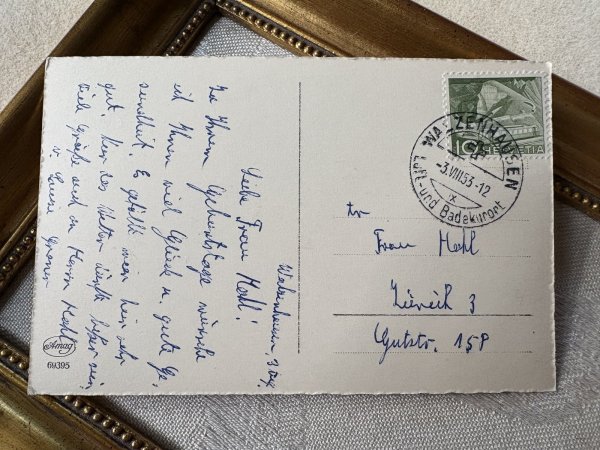 Walzenhausen, 3. Aug.
Liebe Frau Mahl!
Zu Ihrem Geburtstage wünsche
ich Ihnen viel Glück u. gute Ge-
sundheit. Es gefällt mir hier sehr
gut. Nur das Wetter dürfte besser sein
Viele Grüsse auch an Herrn Mahl
v. Luise
Amag
69395
10 HELVETIA
WALZENHAUSEN
-3.VIII.53-12
Luft- und Badekurort
Frau Mahl
Zürich 3
Gutstr. 158